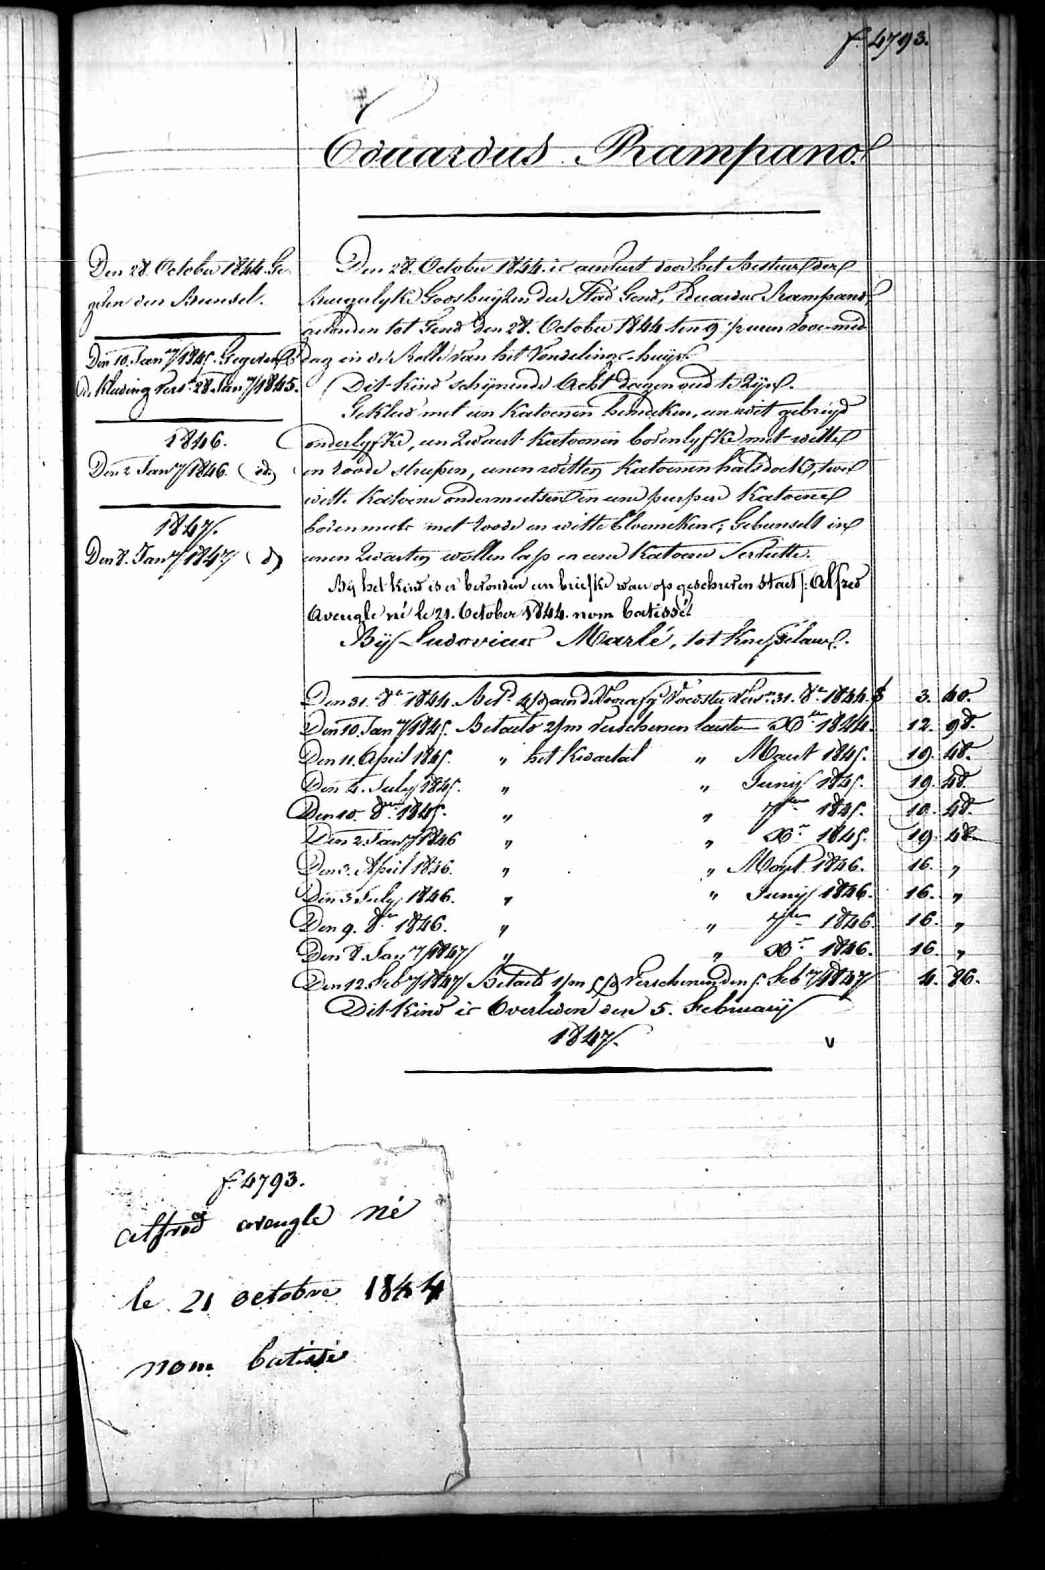 f. 4793.
Eduardus Rampano.
Den 28. October 1844. Ge-
geven den Bunsel.
Den 10. Janry 1845. Gegeven
de kleeding vers. 28 Janry 1845.
1846.
Den 2 Janry 1846. (id)
1847.
Den 8. Janry 1847. (d)
Den 28. October 1844 is aenveert door het Bestuer der
Burgelyke Godshuyzen der Stad Gend, Eduardus Rampano,
gevonden tot Gend den 28. October 1844 ten 9 uren voormid-
dag in de Rolle van het Vondelings-huys.
Dit kind schynende acht dagen oud te zyn.
Gekleed met een katoenen hemdeken, een wit gebreyd
onderlyfke, een zwaert katoenen bovenlyfke met witte
en roode streepen, eenen witten katoenen halsdoek, twee
witte katoene ondermutsen en eene purpere katoene
bovenmuts met roode en witte bloemekens; Gebunselt in
eenen zwarten wollen lap en eene katoene Serviette.
By het kind is er bevonden een briefke waer op geschreven staet: Alfred
Aveugle né le 21. October 1844. nom batissé.
Bij Ludovicus Marlé, tot Knesselaere.
Den 31. 8re 1844. Bet. 4/d aen de Voorafg. Voedster vers. 31. 8re 1844. f 3. 40.
Den 10. Janry 1845. Betaeld 2/m verschenen laeste Xre 1844. 12. 98.
Den 11. April 1845. " het kwartael " Maert 1845. 19. 48.
Den 4. July 1845. " " Junij 1845. 19. 48.
Den 10. 8re 1845. " " 7bre 1845. 19. 48.
Den 2. Janry 1846 " " Xre 1845. 19. 48.
Den 3. April 1846. " " Maert 1846. 16. "
Den 3 July 1846. " " Junij 1846. 16. "
Den 9. 8re 1846. " " 7bre 1846. 16. "
Den 8. Janry 1847 " " Xre 1846. 16. "
Den 12. Febry 1847 Betaeld 1/m 5/d verschenen den 5. Febry 1847 4. 86.
Dit kind is Overleden den 5. February
1847.
v
f. 4793.
alfred aveugle né
le 21 octobre 1844
nom batissé